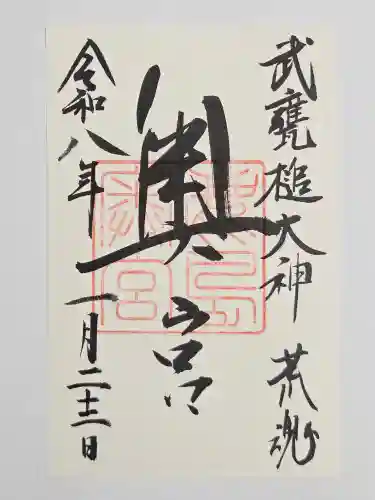 武甕槌大神 荒魂
奥宮
鹿島奥宮
令和八年 一月二十三日